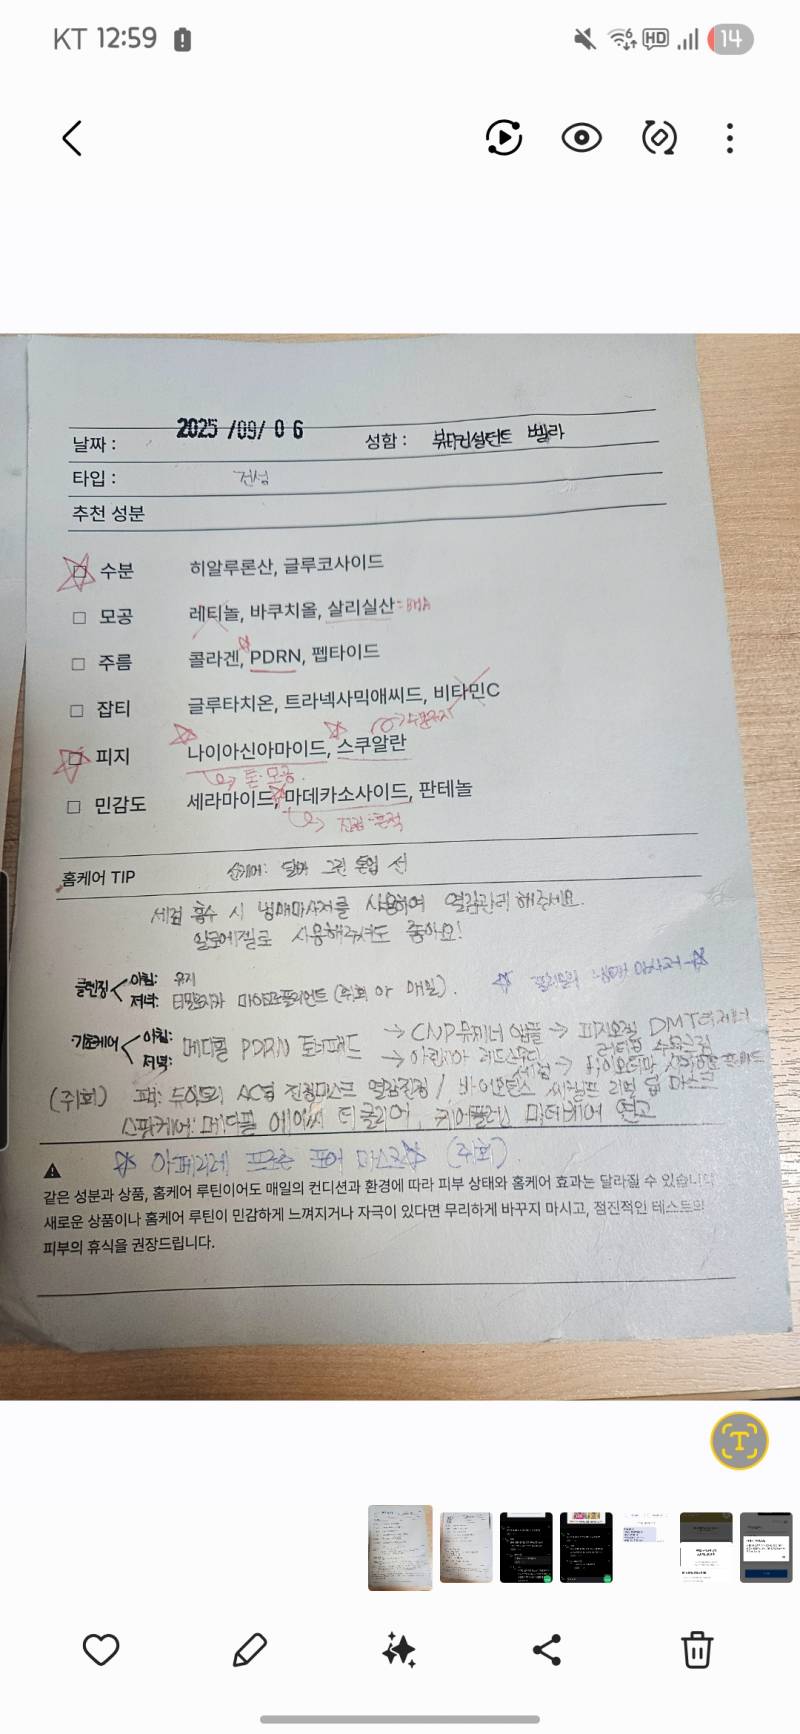 KT 12:59
HD
14
날짜 : 2025 /09/ 06 성함 : 뷰티컨설턴트 벨라
타입 : 건성
추천 성분
□ 수분 히알루론산, 글루코사이드
□ 모공 레티놀, 바쿠치올, 살리실산 = BHA
□ 주름 콜라겐, PDRN, 펩타이드
□ 잡티 글루타치온, 트라넥사믹애씨드, 비타민C
□ 피지 나이아신아마이드, 스쿠알란
톤·모공
□ 민감도 세라마이드, 마데카소사이드, 판테놀
진정·흔적
홈케어 TIP 선케어: 달바 그린 톤업 선
세럼 흡수 시 냉매마사저를 사용하여 열감관리 해주세요.
알로에젤로 사용해주셔도 좋아요!
클렌징 아침: 유지
저녁: (주1회 or 매일).
기초케어 아침: 메디필 PDRN 토너패드 → CNP 앰플 → 피지오겔 DMT
저녁: → 아린시아 세럼 →
(주1회) 팩: 진정마스크 열감진정 / 바이오던스 마스크
스팟케어: 메디필 티 클리어, 케어플러스 연고
마스크 (주1회).
같은 성분과 상품, 홈케어 루틴이어도 매일의 컨디션과 환경에 따라 피부 상태와 홈케어 효과는 달라질 수 있습니다
새로운 상품이나 홈케어 루틴이 민감하게 느껴지거나 자극이 있다면 무리하게 바꾸지 마시고, 점진적인 테스트와
피부의 휴식을 권장드립니다.
T